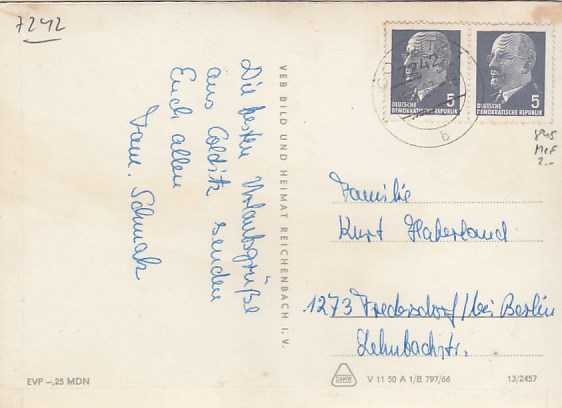 7242
Die besten Urlaubsgrüße
aus Colditz senden
Euch allen
Fam. Schmalz
VEB BILD UND HEIMAT REICHENBACH I. V.
7242
b
DEUTSCHE
DEMOKRATISCHE REPUBLIK
5
DEUTSCHE
DEMOKRATISCHE REPUBLIK
5
845
MeF
2.-
Familie
Kurt Haberland
1273 Fredersdorf/bei Berlin
Lehnbachstr.
EVP –,25 MDN
V 11 50 A 1/B 797/66
13/2457